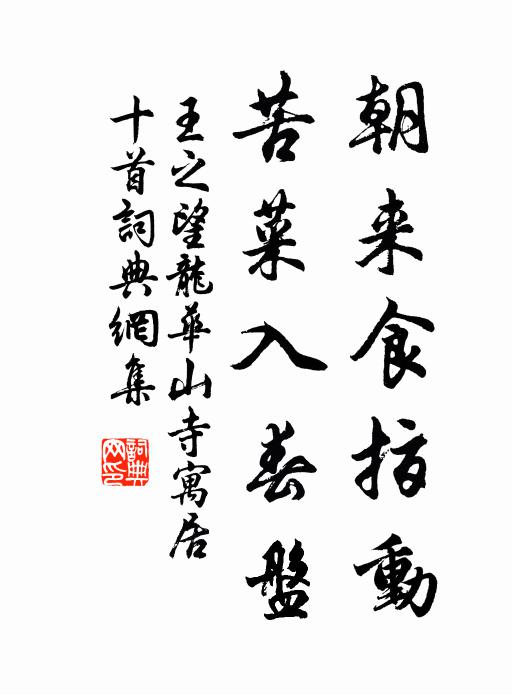 朝来食指動
苦菜入春盤
王之望龍華山寺寓居
十首詞典網集
詞典
网印